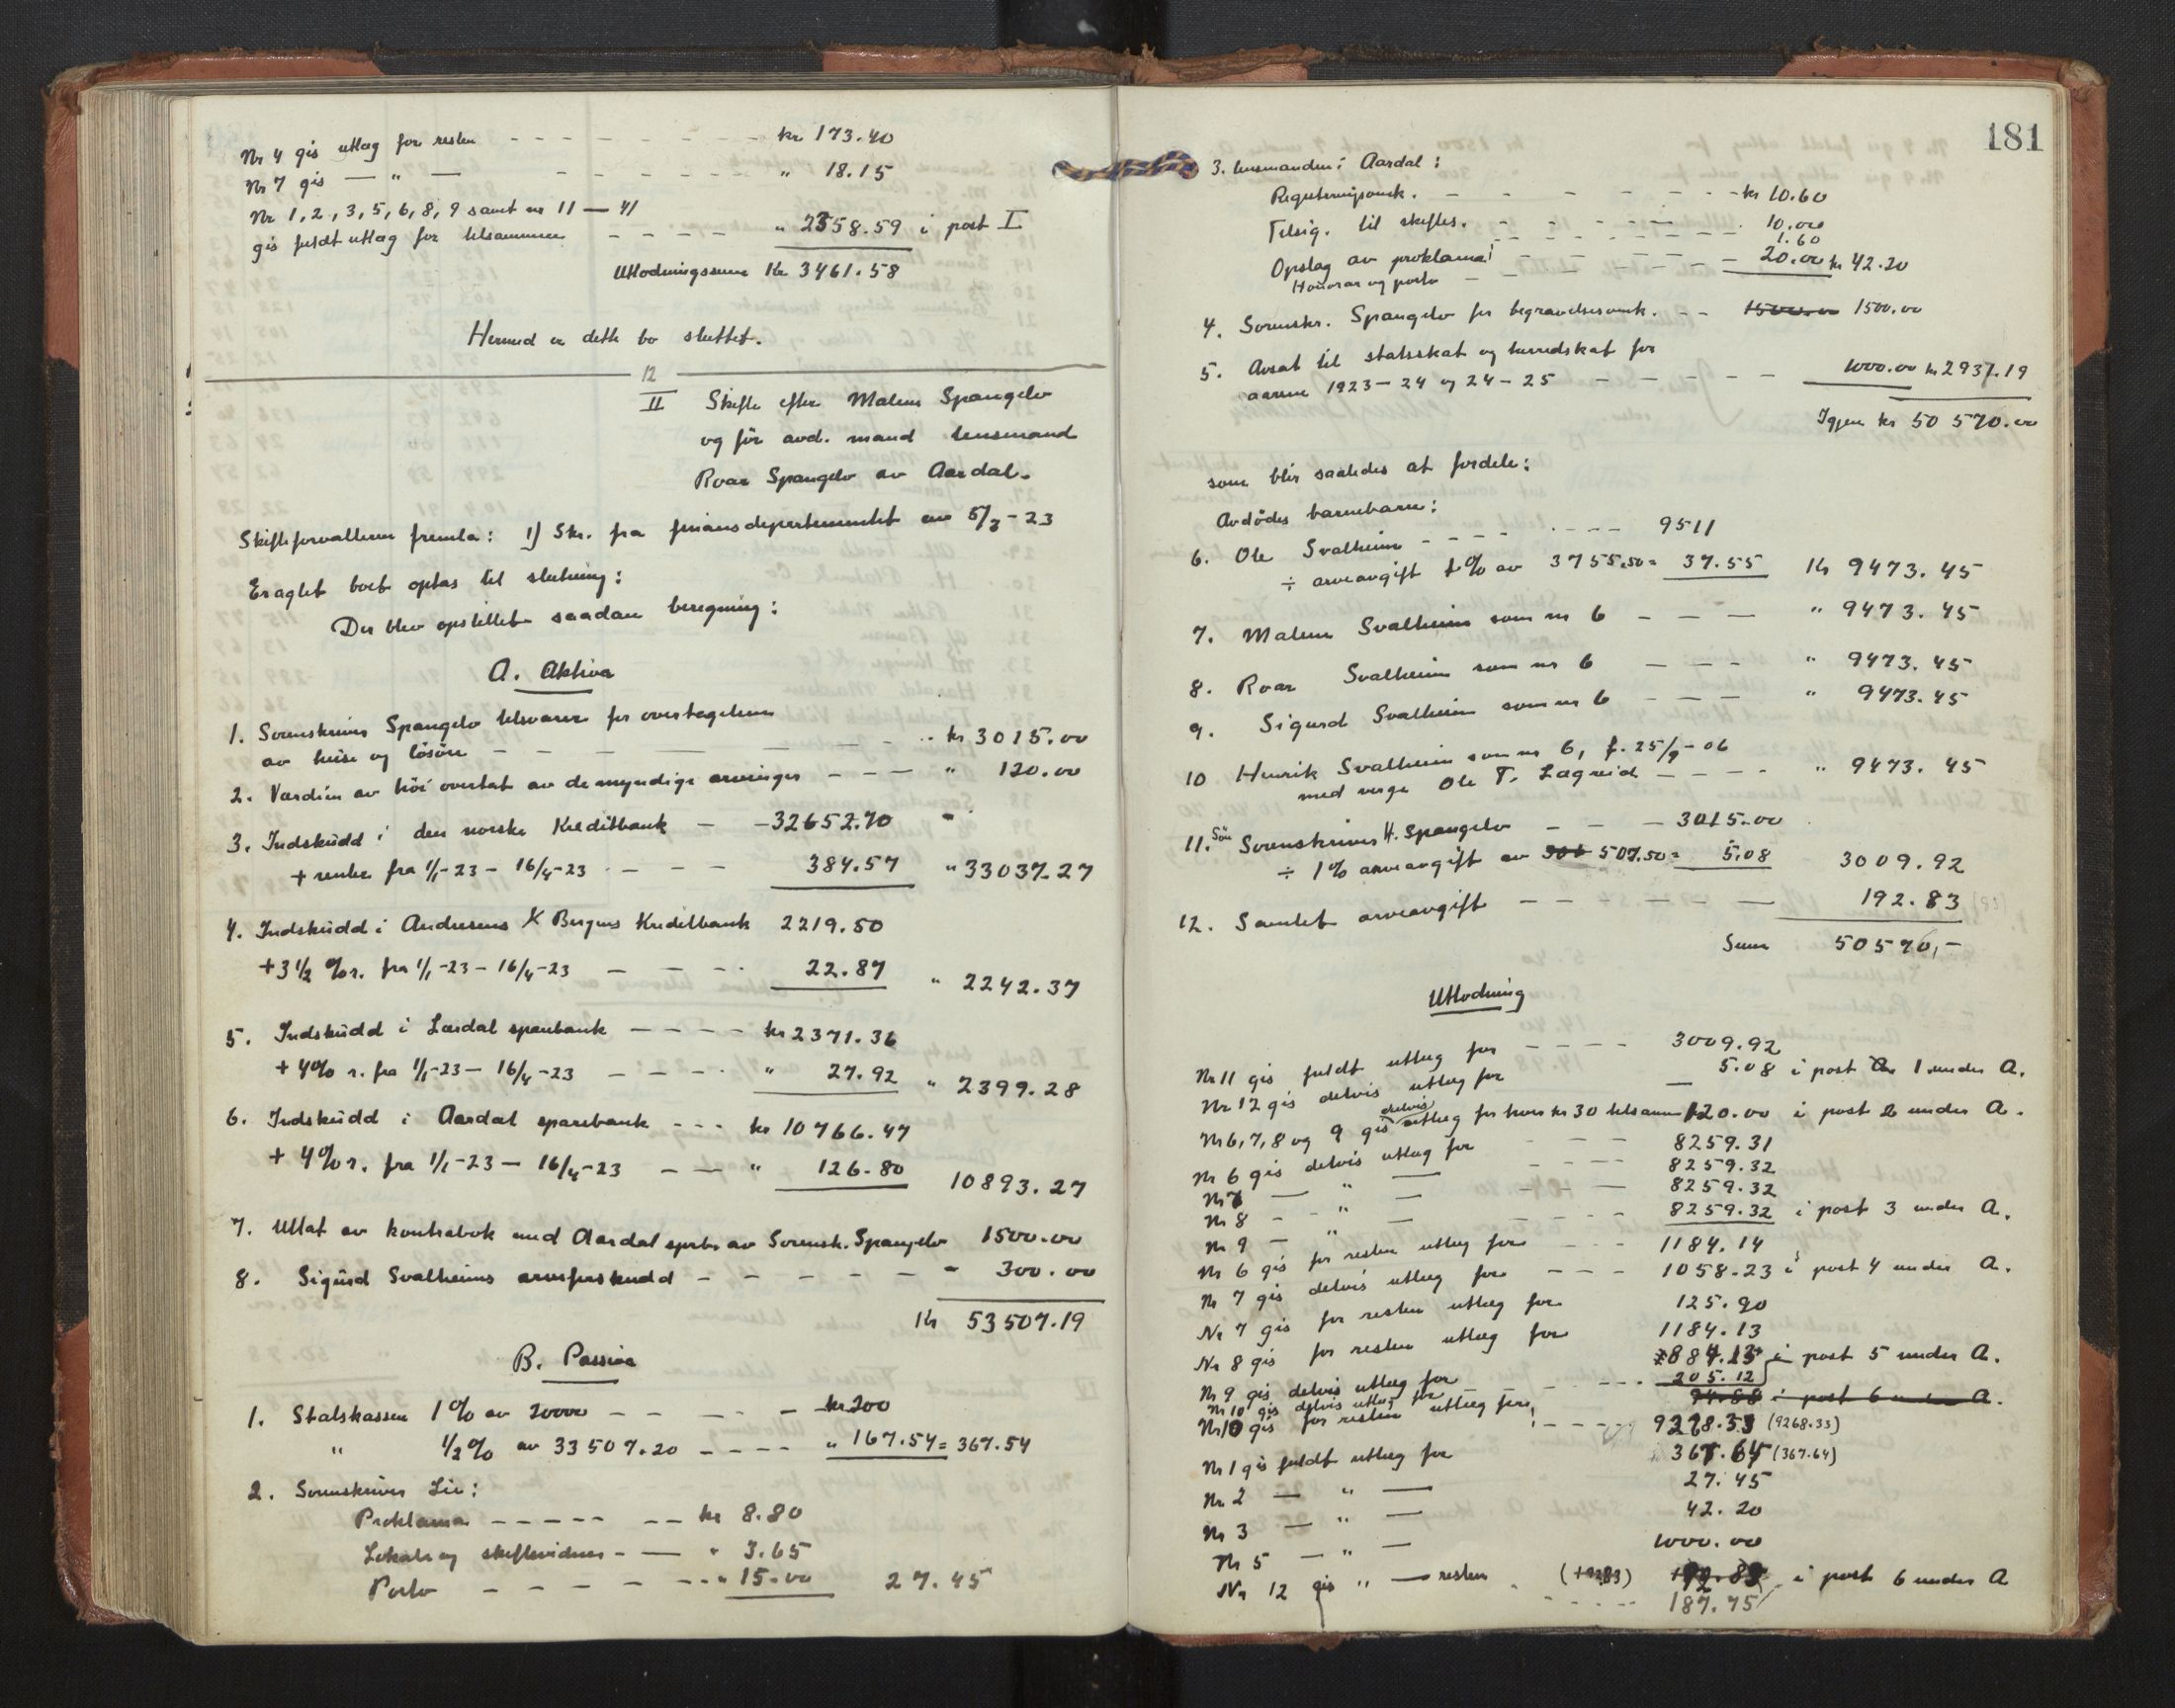 Nr 4 gis utlæg for resten - - - - - - - - kr 173.40
Nr 7 gis — " — - - - - - - " 18.15
Nr 1, 2, 3, 5, 6, 8, 9 samt nr 11 — 41
gis fuldt utlæg for tilsammen - - - - " 2358.59 i post I
Utlodningssum Kr 3461.58
Hermed er dette bo sluttet.
12
II Skifte efter Malene Spangelo
og før avd. mand lensmand
Roar Spangelo av Aardal.
Skifteforvalteren fremla: 1) Skr. fra finansdepartementet av 5/3-23
Eragtet boet optas til slutning:
Der blev opstillet saadan beregning:
A. Aktiva
1. Sorenskriver Spangelo tilsvarer for overtagelsen
av huse og løsøre - - - - - - kr 3015.00
2. Værdien av höi overtat av de myndige arvinger - - - " 120.00
3. Indskudd i den norske Kreditbank - - 32652.70 "
+ renter fra 1/1-23 - 16/4-23 - - - 384.57 " 33037.27
4. Indskudd i Andresens & Bergens Kreditbank 2219.50
+ 3 1/2 % r. fra 1/1-23 - 16/4-23 - - - 22.87 " 2242.37
5. Indskudd i Lærdal sparebank - - - - kr 2371.36
+ 4% r. fra 1/1-23 - 16/4-23 - - - " 27.92 " 2399.28
6. Indskudd i Aardal sparebank - - - kr 10766.47
+ 4% r. fra 1/1-23 - 16/4-23 - - " 126.80 10893.27
7. Uttat av kontrabok med Aardal sprb. av Sorensk. Spangelo 1500.00
8. Sigurd Svalheims arveforskudd - - - - - - 300.00
Kr 53507.19
B. Passiva
1. Statskassen 1% av 20000 - - - - - kr 200
" 1/2% av 33507.20 - - - - " 167.54 = 367.54
2. Sorenskriver Lie:
Proklama - - - - - - - kr 8.80
Lokale og skiftevidner - - " 3.65
Porto - - - - - - - " 15.00 27.45
181
3. Lensmanden i Aardal:
Registeringsomk. - - - - - - kr 10.60
Tilsig. til skiftes. - - - - - 10.00
Opslag av proklama - - - - - - 1.60
Honorar og porto - - - - - - 20.00 kr 42.20
4. Sorenskr. Spangelo for begravelsesomk. - - 1500.00 1500.00
5. Avsat til statsskat og herredskat for
aarene 1923-24 og 24-25 - - - - - 1000.00 kr 2937.19
Igjen kr 50 570.00
som blir saaledes at fordele:
Avdødes barnebarn:
6. Ole Svalheim - - - - - - - - 9511
÷ arveavgift 1% av 3755.50 = 37.55 Kr 9473.45
7. Malene Svalheim som nr 6 - - - " 9473.45
8. Roar Svalheim som nr 6 - - - " 9473.45
9. Sigurd Svalheim som nr 6 - - - " 9473.45
10 Henrik Svalheim som nr 6, f. 25/9-06
med verge Ole T. Lægreid - - - - " 9473.45
11. Søn Sorenskriver H. Spangelo - - - 3015.00
÷ 1% arveavgift av 507.50 = 5.08 3009.92
12. Samlet arveavgift - - - - - - 192.83
Sum 50570,-
Utlodning
Nr 11 gis fuldt utlæg for - - - - 3009.92
Nr 12 gis delvis utlæg for — 5.08 i post 1 under A.
Nr 6, 7, 8 og 9 gis delvis utlæg for hver kr 30 tilsammen 120.00 i post 2 under A.
Nr 6 gis delvis utlæg for - - - 8259.31
Nr 7 — " — - - - 8259.32
Nr 8 - - " — - - - 8259.32
Nr 9 — " — - - - - 8259.32 i post 3 under A.
Nr 6 gis for resten utlæg for - - - 1184.14
Nr 7 gis delvis utlæg for - - - 1058.23 i post 4 under A.
Nr 7 gis for resten utlæg for 125.90
Nr 8 gis for resten utlæg for 1184.13
Nr 9 gis delvis utlæg for 884.13 i post 5 under A.
Nr 10 gis delvis utlæg for - - - - 205.12
94.88 i post 6 under A.
Nr 10 gis for resten utlæg for - - - - 9278.33 (9268.33)
Nr 1 gis fuldt utlæg for 367.64 (367.64)
Nr 2 — " — 27.45
Nr 3 — " — 42.20
Nr 5 — " — 1000.00
Nr 12 gis " — resten i post 6 under A
- - - - 187.75